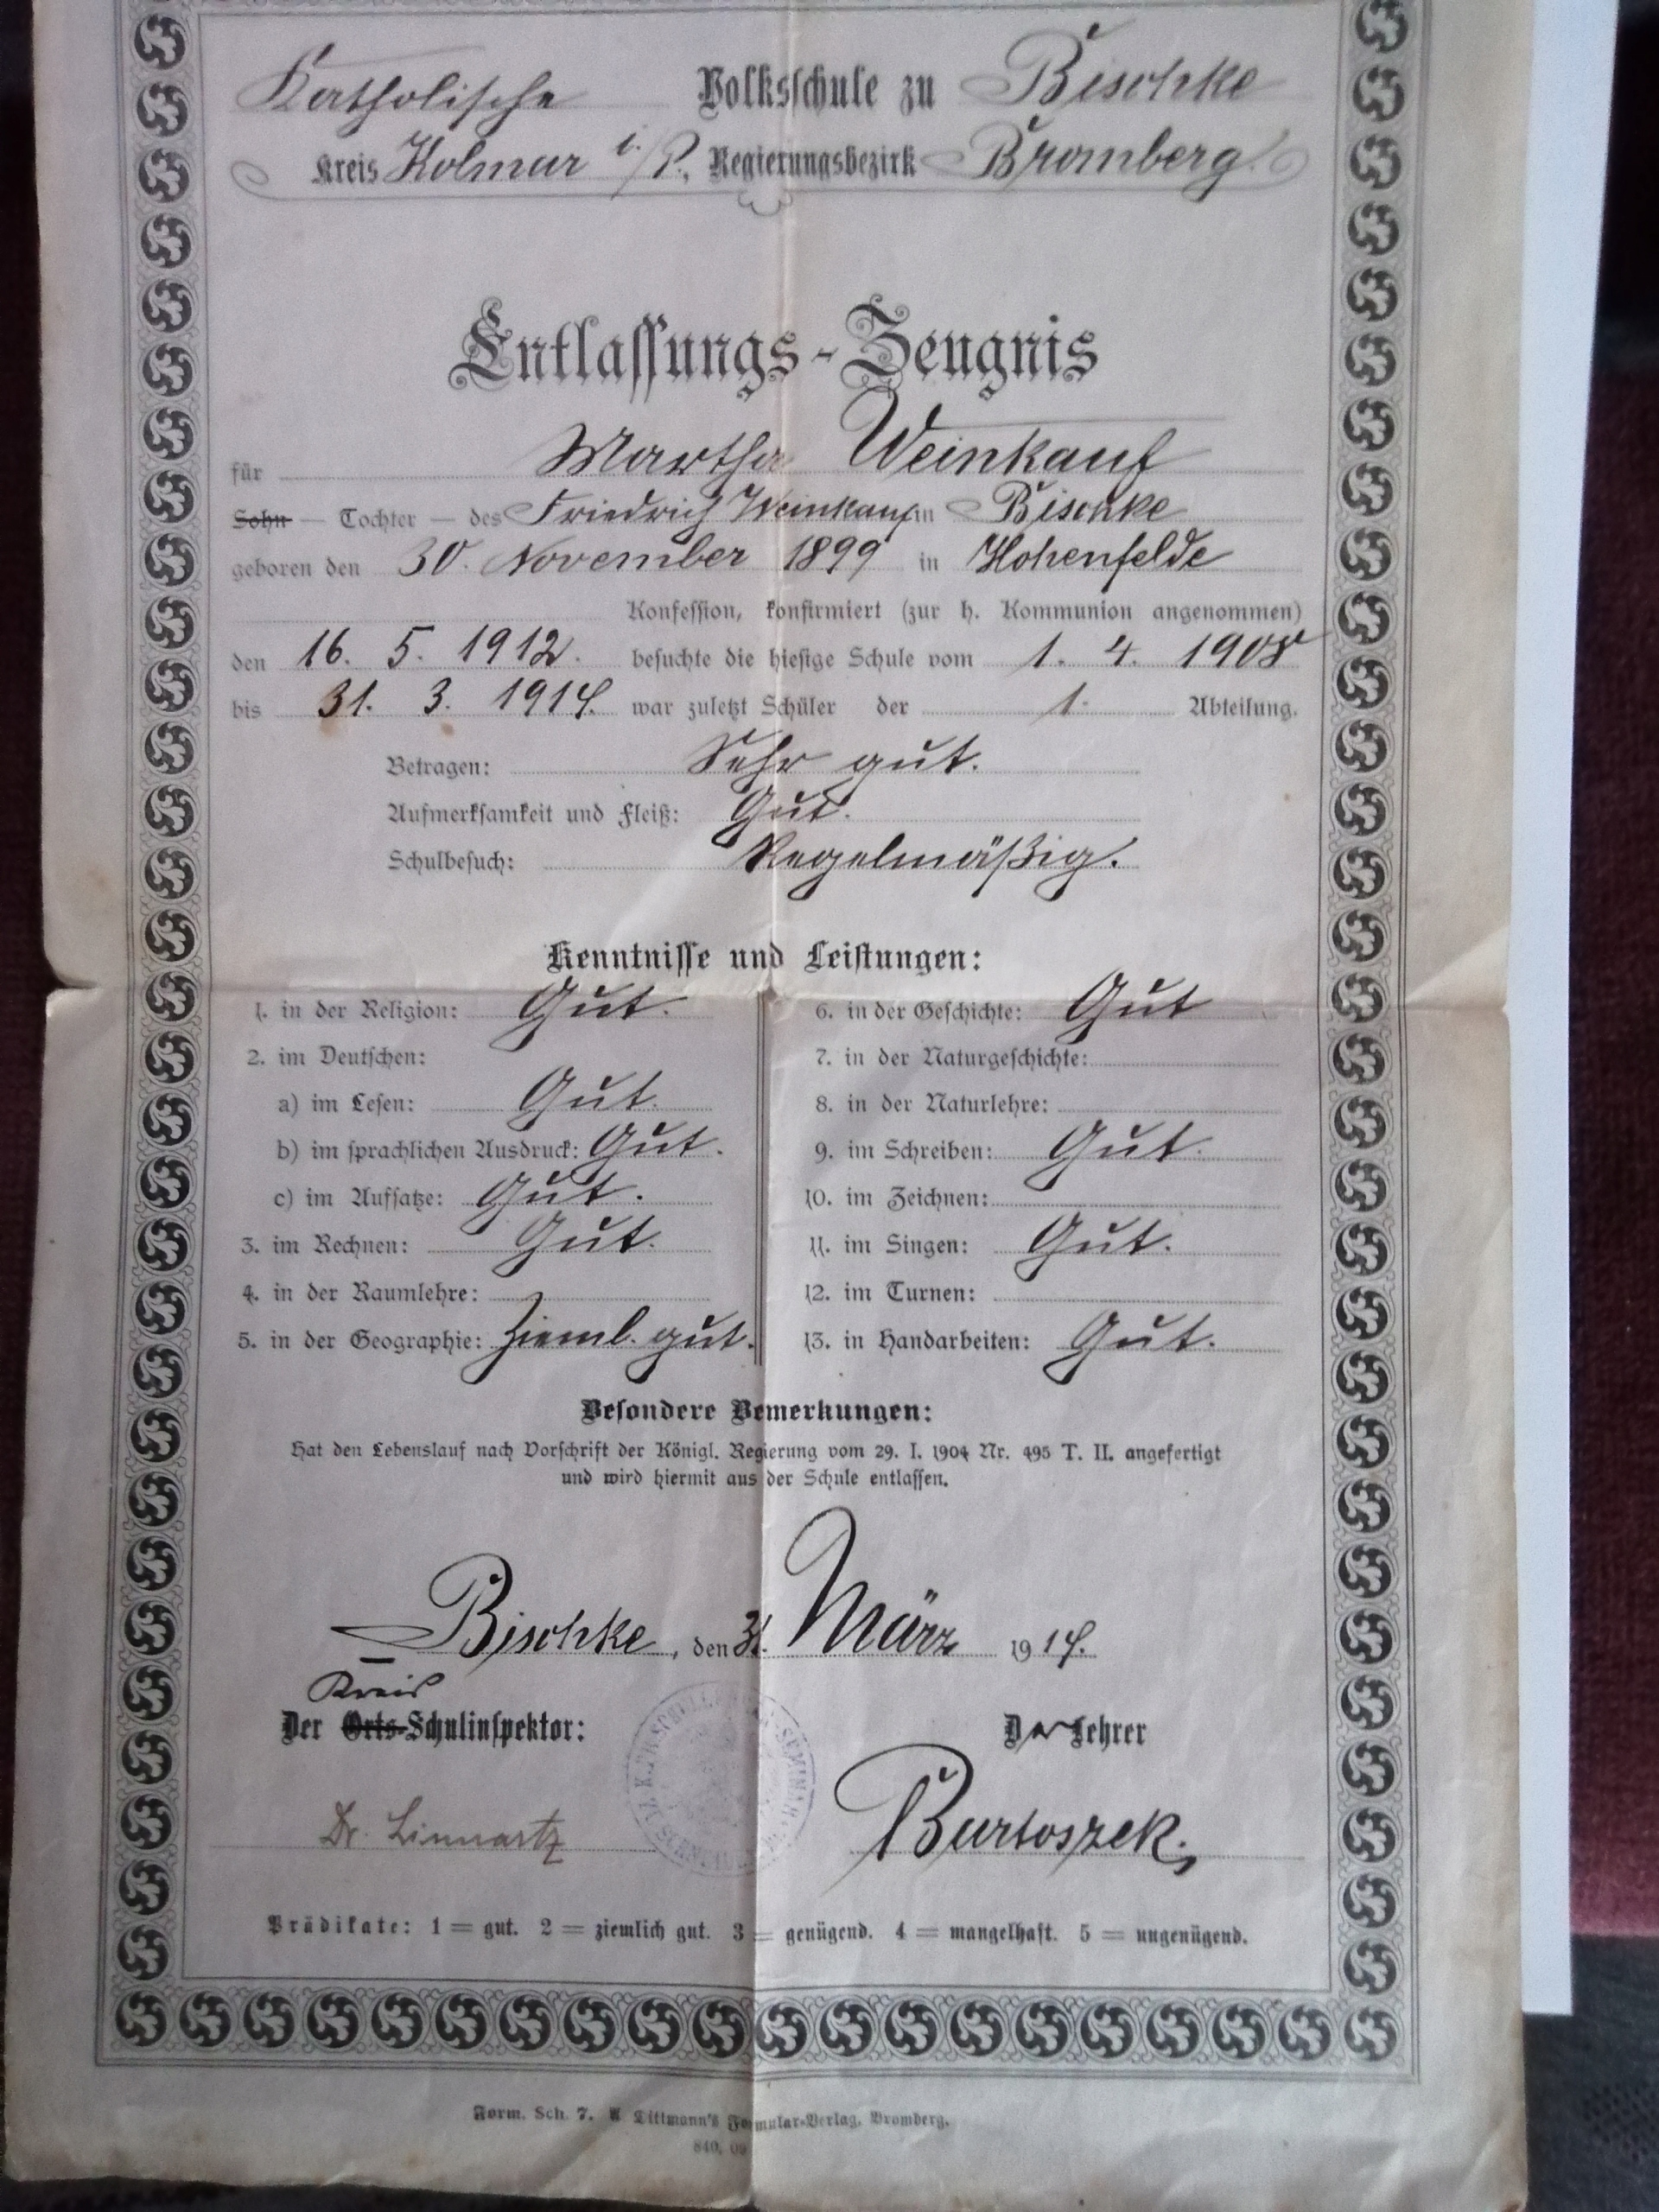 Katholische Volksschule zu Bischke
Kreis Kolmar i./P., Regierungsbezirk Bromberg.
Entlassungs-Zeugnis
für Martha Weinkauf
Sohn — Tochter — des Friedrich Weinkauf in Bischke
geboren den 30. November 1899 in Hohenfelde
Konfession, konfirmiert (zur h. Kommunion angenommen)
den 16. 5. 1912. besuchte die hiesige Schule vom 1. 4. 1908
bis 31. 3. 1914. war zuletzt Schüler der 1. Abteilung.
Betragen: Sehr gut.
Aufmerksamkeit und Fleiß: Gut.
Schulbesuch: Regelmäßig.
Kenntnisse und Leistungen:
1. in der Religion: Gut.
2. im Deutschen:
a) im Lesen: Gut.
b) im sprachlichen Ausdruck: Gut.
c) im Aufsatze: Gut.
3. im Rechnen: Gut.
4. in der Raumlehre:
5. in der Geographie: Zieml. gut.
6. in der Geschichte: Gut
7. in der Naturgeschichte:
8. in der Naturlehre:
9. im Schreiben: Gut.
10. im Zeichnen:
11. im Singen: Gut.
12. im Turnen:
13. in Handarbeiten: Gut.
Besondere Bemerkungen:
Hat den Lebenslauf nach Vorschrift der Königl. Regierung vom 29. I. 1904 Nr. 495 T. II. angefertigt
und wird hiermit aus der Schule entlassen.
Bischke, den 31. März 1914.
Kreis
Der Orts-Schulinspektor:
Der Lehrer
Dr. Linnartz
Bartoszek.
Prädikate: 1 = gut. 2 = ziemlich gut. 3 = genügend. 4 = mangelhaft. 5 = ungenügend.
Form. Sch. 7. A Dittmann's Formular-Verlag, Bromberg.
840. 09